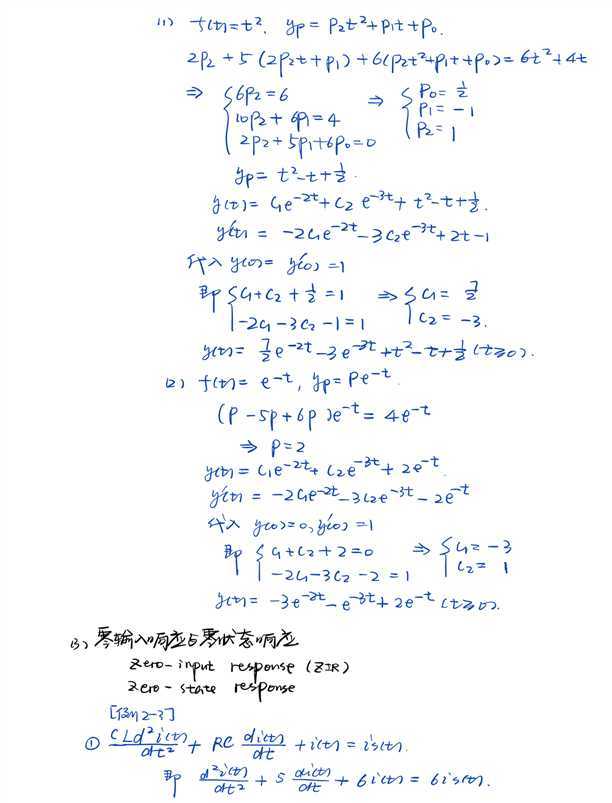 (1) f(t)=t², yp = P2t²+P1t+P0.
2P2 + 5(2P2t+P1)+6(P2t²+P1t+P0)=6t²+4t
⇒ {6P2=6 ⇒ {P0=1/2
10P2+6P1=4 P1=-1
2P2+5P1+6P0=0 P2=1
yp = t²-t+1/2.
y(t) = C1e^-2t+C2 e^-3t+t²-t+1/2.
y'(t) = -2C1e^-2t-3C2e^-3t+2t-1
代入 y(0)= y'(0)=1
即 {C1+C2+1/2=1 ⇒ {C1= 7/2
-2C1-3C2-1=1 C2=-3.
y(t)= 7/2e^-2t-3e^-3t+t²-t+1/2 (t≥0).
(2) f(t)= e^-t, yp=Pe^-t.
(P-5P+6P)e^-t=4e^-t
⇒ P=2
y(t)=C1e^-2t+C2e^-3t+2e^-t.
y'(t)=-2C1e^-2t-3C2e^-3t-2e^-t
代入 y(0)=0, y'(0)=1
即 {C1+C2+2=0 ⇒ {C1=-3
-2C1-3C2-2=1 C2= 1
y(t)=-3e^-2t-e^-3t+2e^-t (t≥0).
(3) 零输入响应与零状态响应
Zero-input response (ZIR)
Zero-state response
[例2-3]
① CLd²i(t)/dt² + RC di(t)/dt + i(t)=is(t).
即 d²i(t)/dt² + 5 di(t)/dt + 6i(t)=6is(t).